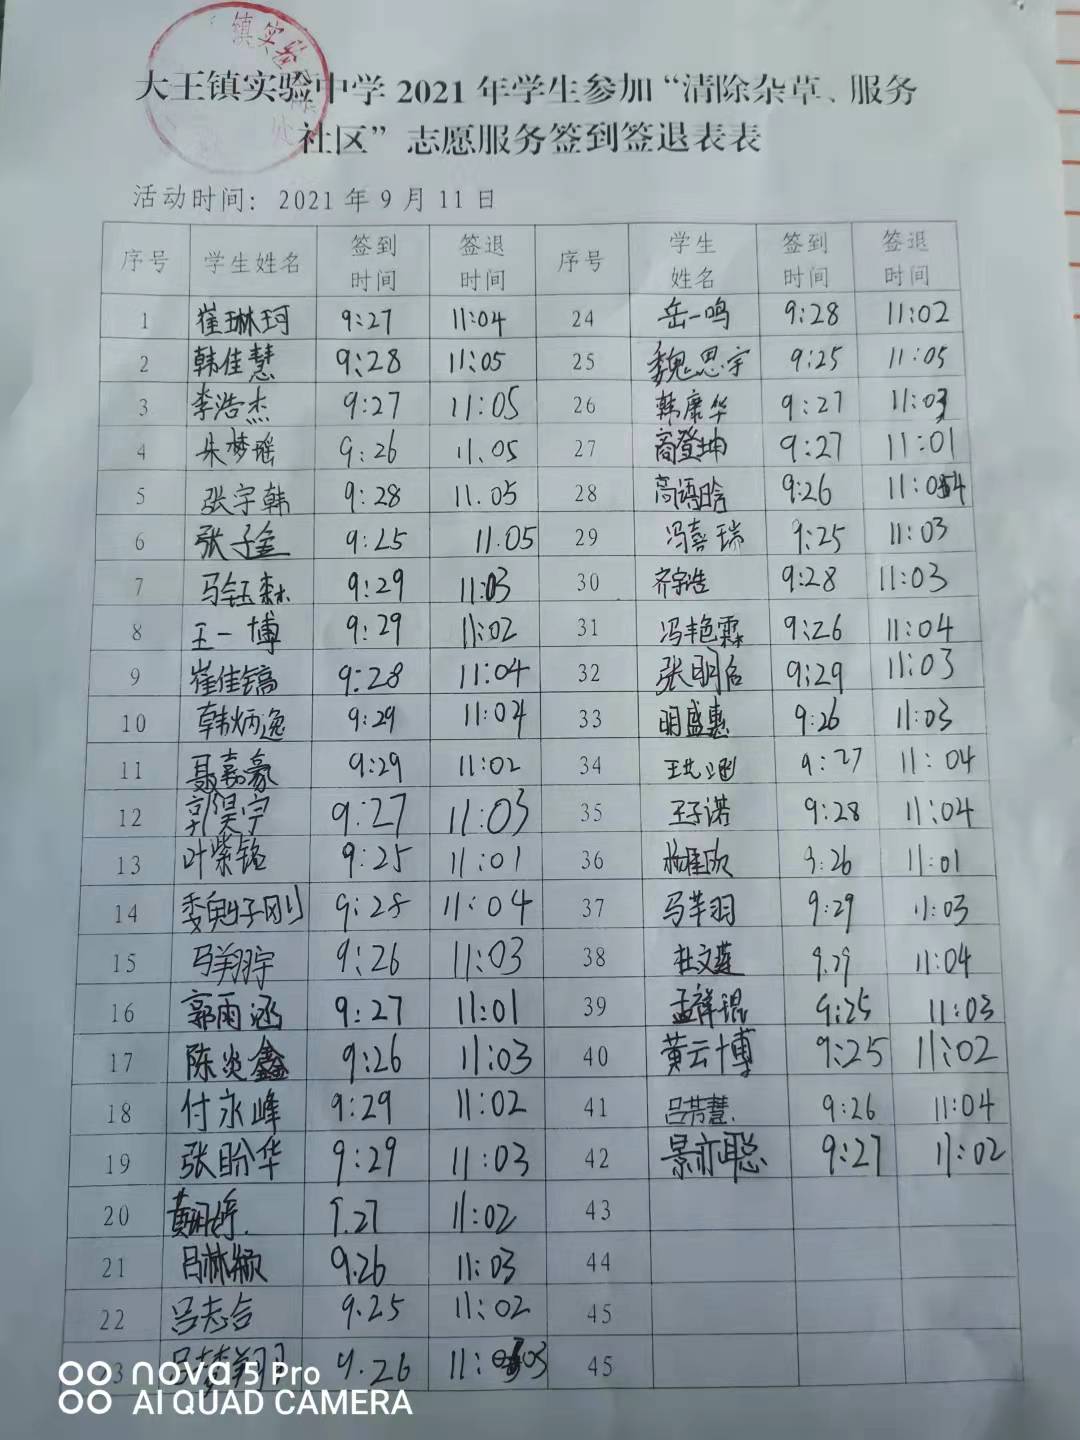 镇实验
大王镇实验中学 2021 年学生参加“清除杂草、服务
社区”志愿服务签到签退表表
活动时间：2021 年 9 月 11 日
序号 学生姓名 签到时间 签退时间 序号 学生姓名 签到时间 签退时间
1 崔琳珂 9:27 11:04 24 岳一鸣 9:28 11:02
2 韩佳慧 9:28 11:05 25 魏思宇 9:25 11:05
3 李浩杰 9:27 11:05 26 韩康华 9:27 11:03
4 朱梦瑶 9:26 11.05 27 商登坤 9:27 11:01
5 张宇韩 9:28 11.05 28 高语晗 9:26 11:04
6 张子金 9:25 11.05 29 冯喜瑞 9:25 11:03
7 马钰森 9:29 11:03 30 齐宇浩 9:28 11:03
8 王一博 9:29 11:02 31 冯艳霖 9:26 11:04
9 崔佳镐 9:28 11:04 32 张明启 9:29 11:03
10 韩炳逸 9:29 11:04 33 明盛惠 9:26 11:03
11 聂嘉豪 9:29 11:02 34 9:27 11:04
12 郭昊宁 9:27 11:03 35 王子诺 9:28 11:04
13 叶紫铭 9:25 11:01 36 9:26 11:01
14 魏子刚 9:28 11:04 37 马芊羽 9:29 11:03
15 马翔宇 9:26 11:03 38 杜文莲 9.29 11:04
16 郭雨涵 9:27 11:01 39 孟祥琨 9:25 11:03
17 陈炎鑫 9:26 11:03 40 黄云博 9:25 11:02
18 付永峰 9:29 11:02 41 吕芳慧. 9:26 11:04
19 张盼华 9:29 11:03 42 景亦聪 9:27 11:02
20 9.27 11:02 43
21 吕林颖 9.26 11:03 44
22 吕志合 9.25 11:02 45
23 吕梦翔 9.26 11:03 45
nova 5 Pro
AI QUAD CAMERA